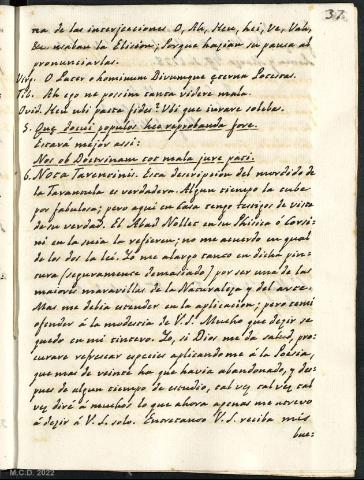 37.
na de las interjecciones O, Ah, Heu, hei, Ve, Vah,
&c usaban la Elission, Porque hazian su pausa al
pronunciarlas.
Virg. O Pater o hominum Divumque eterna Potestas.
Tib. Ah ego ne possim tanta videre mala.
Ovid. Heu ubi pacta fides? Ubi que jurare solebas.
5. Que docui populos hec reprobanda fore.
Estará mejor assi:
Nos ob Doctrinam tot mala jure pati.
6. Nota Tarentinis. Esta descripcion del mordido de
la Tarantula es verdadera. Algun tiempo la tube
por fabulosa; pero aqui en casa tengo testigos de vista
de su verdad. El Abad Nollet en su Phisica ó Corsi-
ni en la suia la refieren; no me acuerdo en qual
de los dos la leí. Yo me alargo tanto en dicha pin-
tura (seguramente demasiado) por ser una de las
maiores maravillas de la Naturaleza y del arte.
Mas me debia estender en la aplicacion; pero temi
ofender á la modestia de V.S. Mucho que dezir se
quedo en mi tintero. Yo, si Dios me da salud, pro-
curare refrescar especies aplicandome á la Poesia,
que mas de veinte ha que havia abandonado, y des-
pues de algun tiempo de estudio, tal vez tal vez tal
vez diré á muchos lo que ahora apenas me atrevo
á dezir á V.S. solo. Entretanto V.S. reciba mis
bue-
M.C.D. 2022